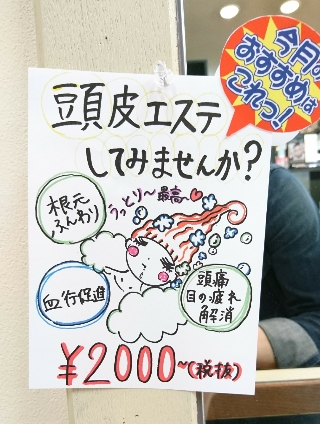 今月の
おすすめは
これっ!
頭皮エステ
してみませんか?
根元
ふんわり
うっとり〜最高♥
血行促進
頭痛
目の疲れ
解消
¥2000〜(税抜)